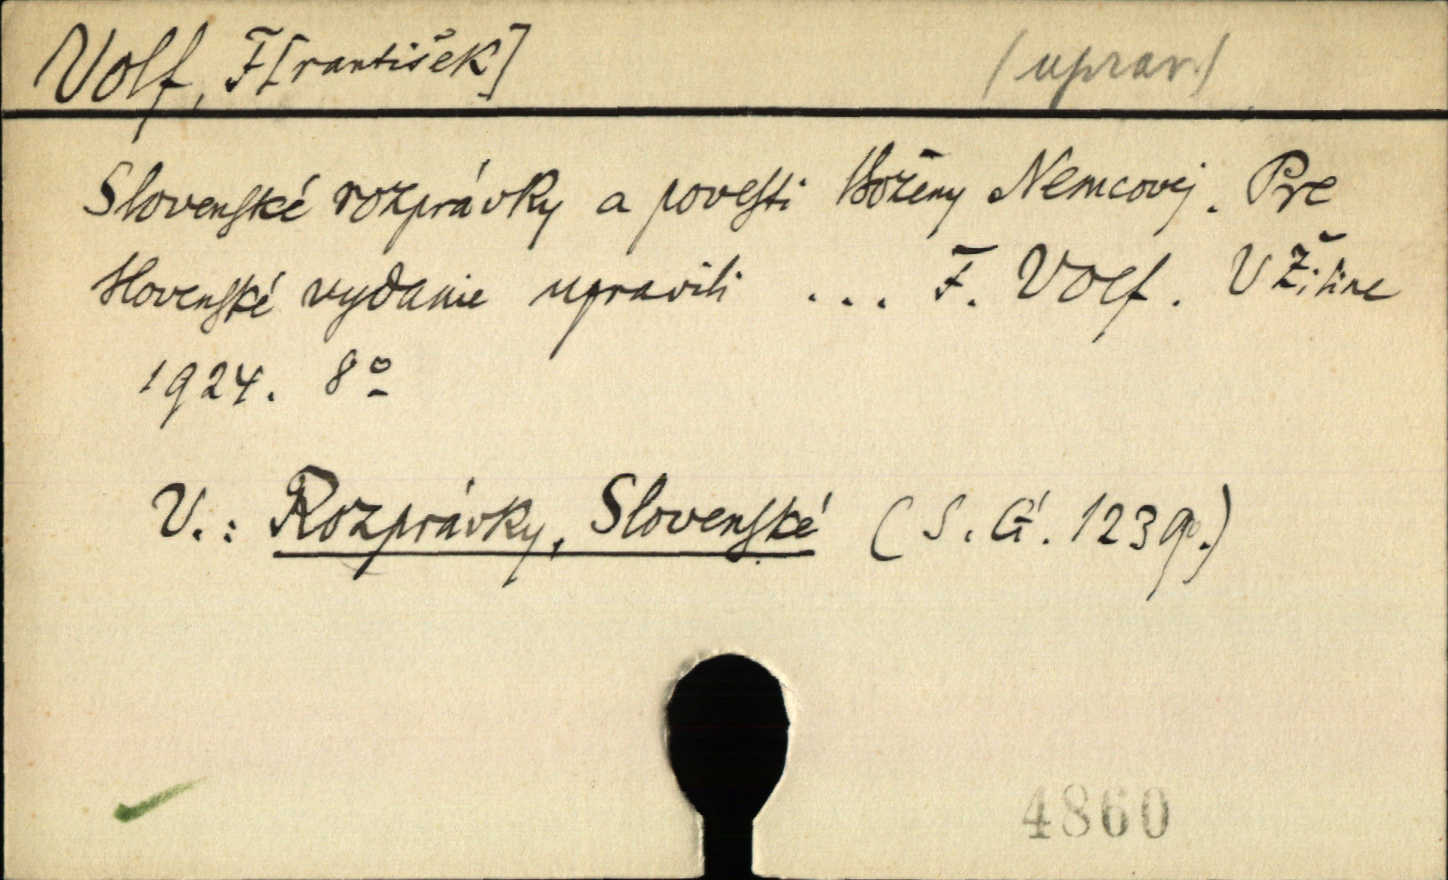 Volf, F[rantišek] (uprav.)
Slovenské rozprávky a povesti Boženy Nemcovej. Pre
slovenské vydanie upravili ... F. Volf. V Žiline
1924. 8º
V.: Rozprávky, Slovenské (S. G. 1239.)
4860